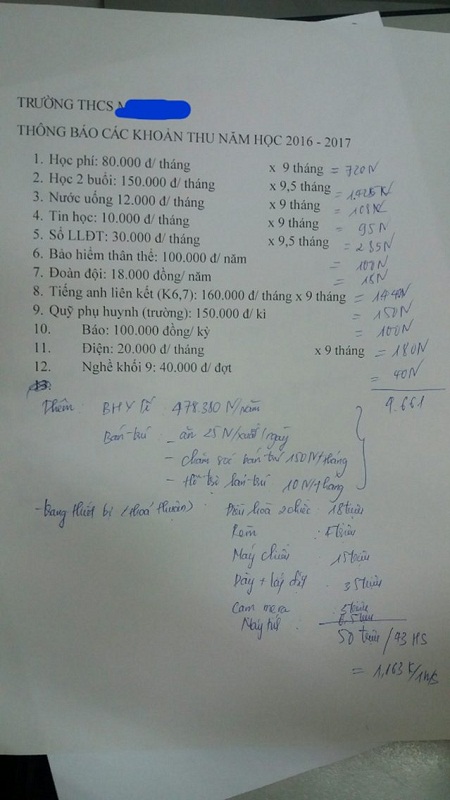 TRƯỜNG THCS
THÔNG BÁO CÁC KHOẢN THU NĂM HỌC 2016 - 2017
1. Học phí: 80.000 đ/ tháng x 9 tháng = 720N
2. Học 2 buổi: 150.000 đ/ tháng x 9,5 tháng = 1.425K
3. Nước uống 12.000 đ/ tháng x 9 tháng = 108K
4. Tin học: 10.000 đ/ tháng x 9 tháng = 95N
5. Sổ LLĐT: 30.000 đ/ tháng x 9,5 tháng = 285N
6. Bảo hiểm thân thể: 100.000 đ/ năm = 100N
7. Đoàn đội: 18.000 đồng/ năm = 18N
8. Tiếng anh liên kết (K6,7): 160.000 đ/ tháng x 9 tháng = 1440N
9. Quỹ phụ huynh (trường): 150.000 đ/ kì = 150N
10. Báo: 100.000 đồng/ kỳ = 100N
11. Điện: 20.000 đ/ tháng x 9 tháng = 180N
12. Nghề khối 9: 40.000 đ/ đợt = 40N
9.661
Thêm: BHYTế 478.380 N/năm
Bán trú: - ăn 25N/xuất/ngày
- chăm sóc bán trú 150N/tháng
- Hỗ trợ bán trú 10N/tháng
- trang thiết bị (thoả thuận): Điều hoà 2 chiếc 18 triệu
Rèm
Máy chiếu 15 triệu
Dây + lắp đặt 3.5 triệu
Camera
50 triệu / 43 HS
= 1,163K/1HS